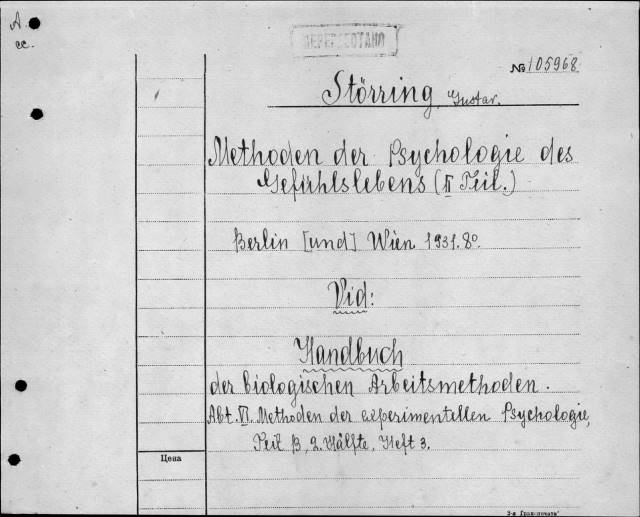 A.
ес.
ПЕРЕРАБОТАНО
№ 105968
Störring, Gustav.
Methoden der Psychologie des
Gefühlslebens (II Teil.)
Berlin [und] Wien 1931. 8°.
Vid:
Handbuch
der biologischen Arbeitsmethoden.
Abt. VI. Methoden der experimentellen Psychologie,
Teil B, 2. Hälfte, Heft 3.
Цена